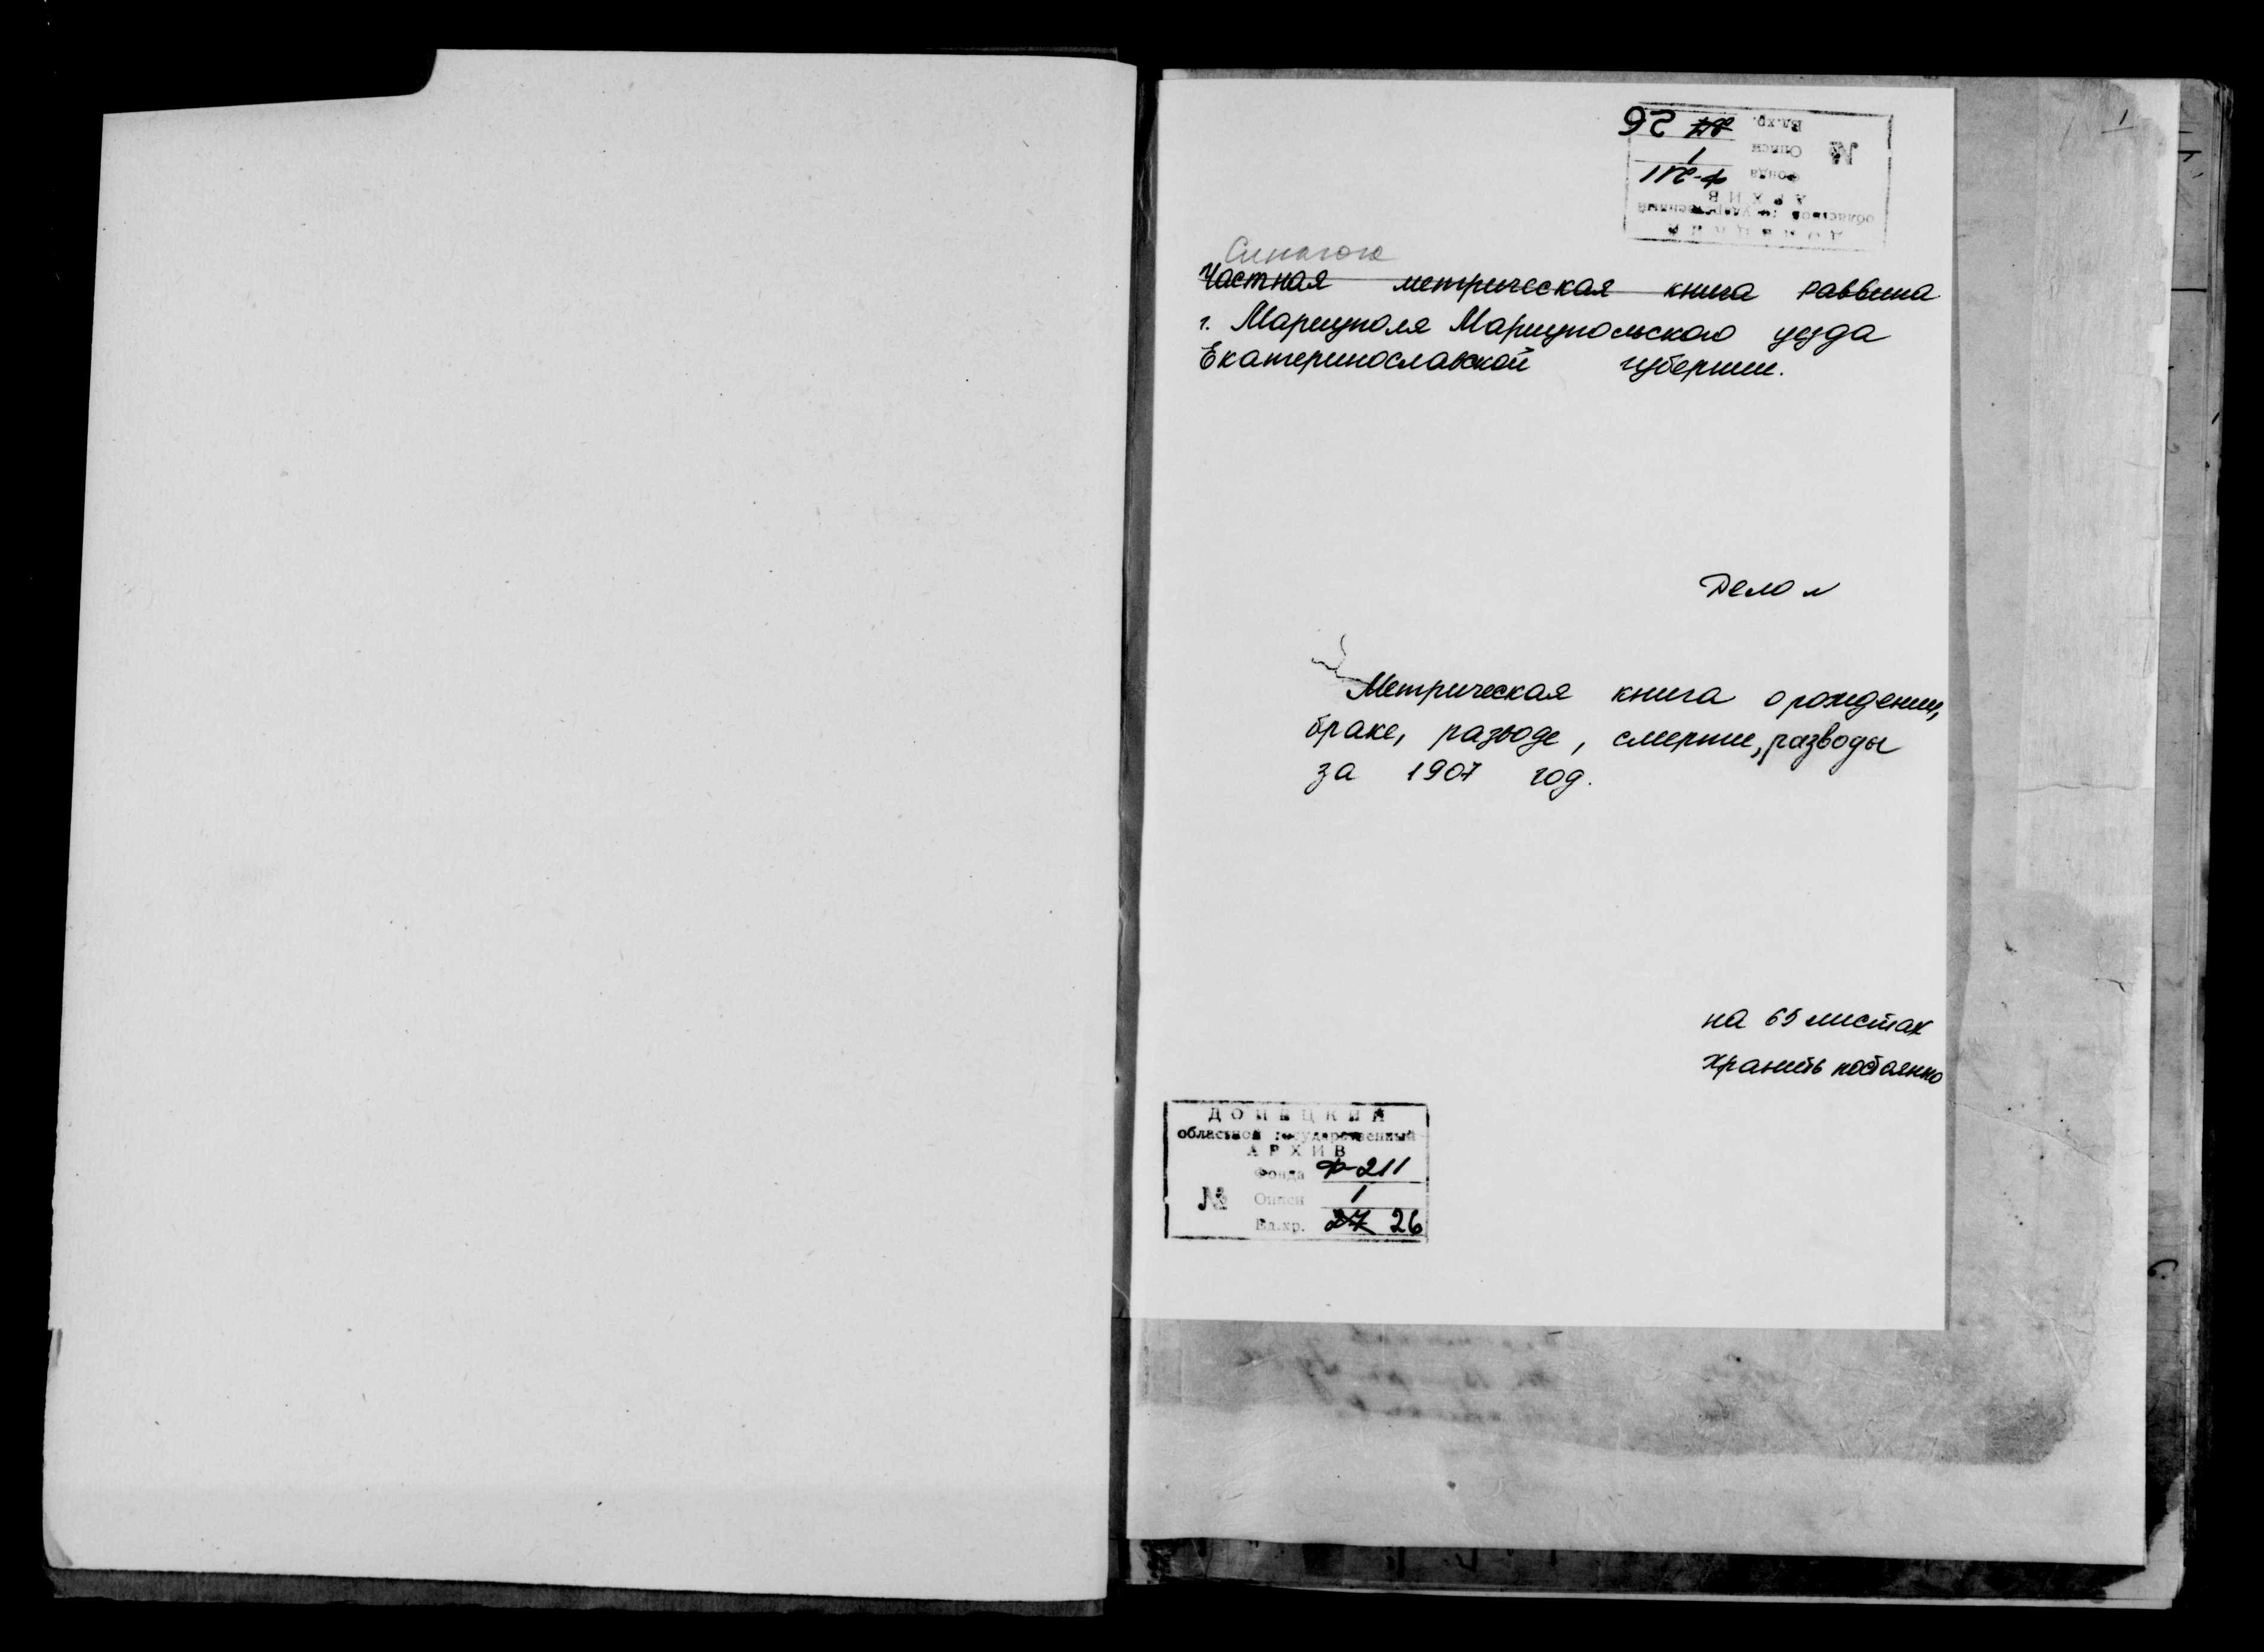 1
№
Ед.хр. 27 26
Описи 1
Фонда Ф-211
АРХИВ
областной государственный
ДОНЕЦКИЙ
Синагога
Частная метрическая книга раввина
г. Мариуполя Мариупольского уезда
Екатеринославской губернии.
Дело №
Метрическая книга о рождении,
браке, разводе, смерти, разводы
за 1907 год.
на 65 листах
Хранить постоянно
ДОНЕЦКИЙ
областной государственный
АРХИВ
Фонда Ф-211
№ Описи 1
Ед.хр. 27 26